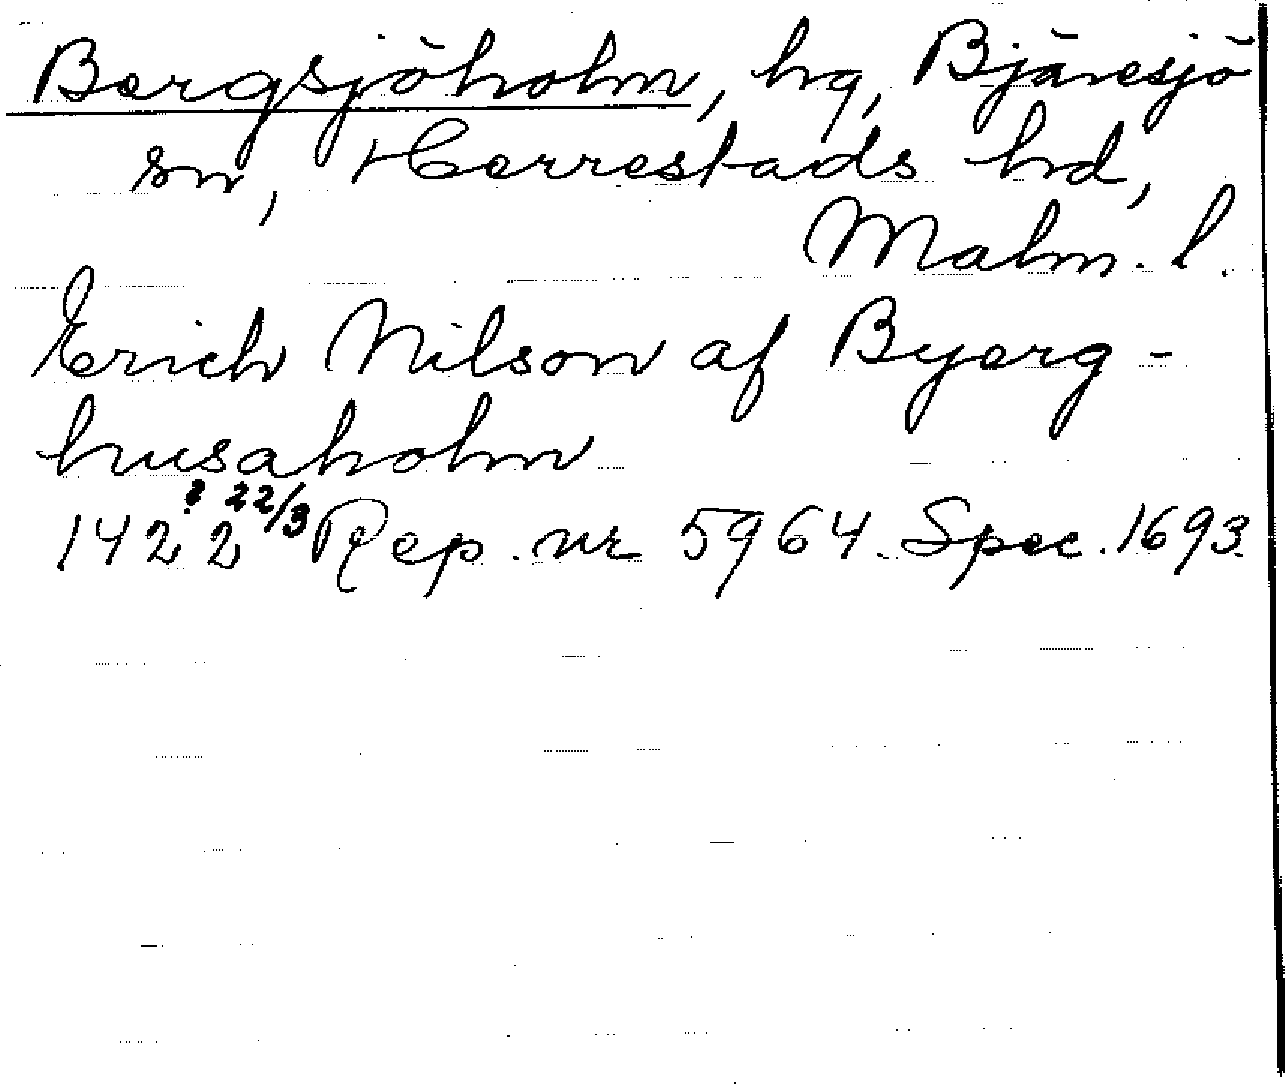 Bergsjöholm, hg, Bjäresjö
sn, Herrestads hd,
Malm. l.
Erich Nilson af Byerg-
husaholm
142?2 22/3 Rep. nr 5964. Spec. 1693.